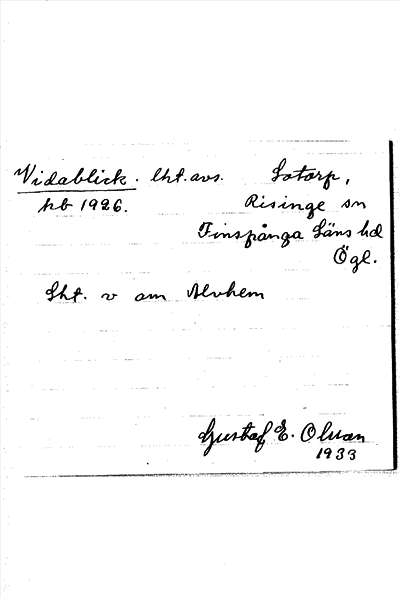 Vidablick. lht. avs. Sotorp,
kb 1926. Risinge sn
Finspånga Läns hd
Ögl.
Lht. v om Alvhem
Gustaf E. Olsson
1933